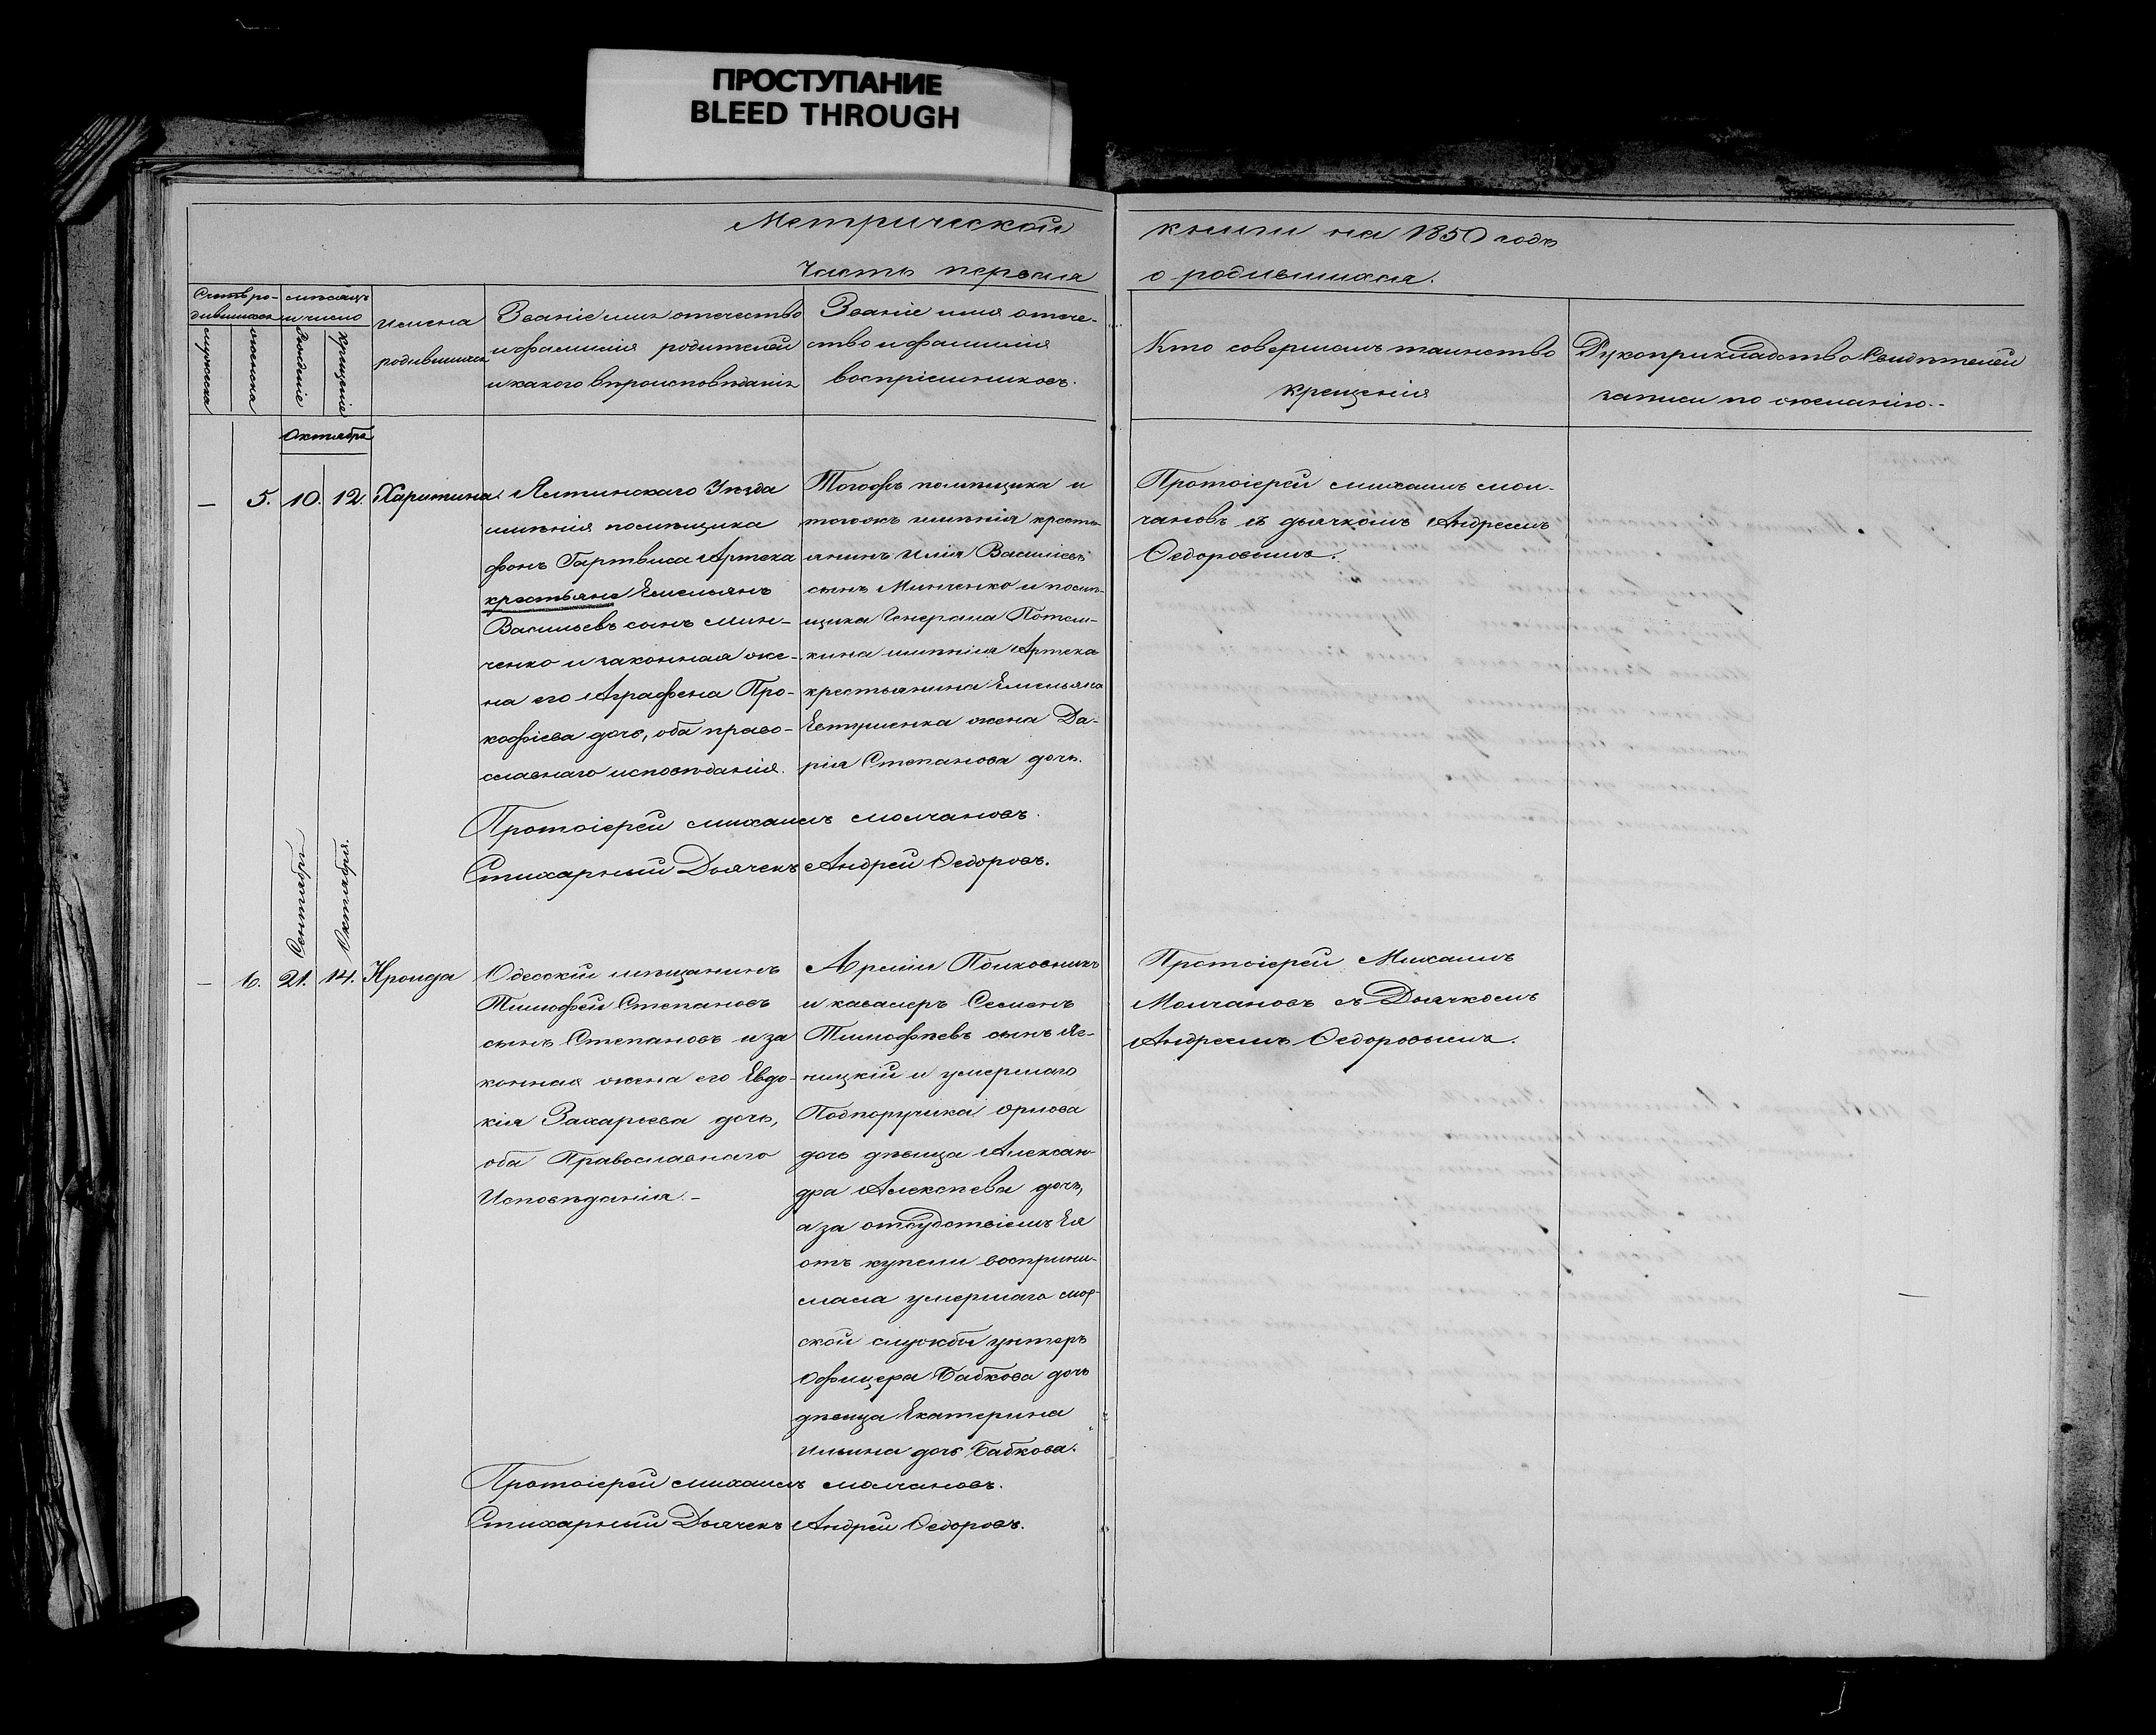 ПРОСТУПАНИЕ
BLEED THROUGH
Метрической книги на 1850 годъ
Часть первая о родившихся.
Счетъ родившихся
мужеска
женска
мѣсяцъ и число
Рожденіе
Крещеніе
Имена
родившихся
Званіе имя отечество
и фамилія родителей
и какого вѣроисповѣданія
Званіе имя отече-
ство и фамилія
воспріемниковъ.
Кто совершалъ таинство
крещенія
Рукоприкладство Свидѣтелей
записи по желанію.-
Октября
— 5. 10. 12. Харитина
Ялтинскаго Уѣзда
имѣнія помѣщика
фонъ Гартвиса Артека
крестьяне Емельянъ
Васильевъ сынъ Мин-
ченко и законная же-
на его Аграфена Про-
кофіева дочь, оба право-
славнаго исповѣданія.
Тогожъ помѣщика и
тогожъ имѣнія кресть-
янинъ Илія Василіевъ
сынъ Минченко и помѣ-
щика Генерала Потем-
кина имѣнія Артека
крестьянина Емельяна
жена Да-
рія Степанова дочь.
Протоіерей Михаилъ Мол-
чановъ съ дьячкомъ Андреемъ
Ѳедоровымъ.
Протоіерей Михаилъ Молчановъ.
Стихарный Дьячекъ Андрей Ѳедоровъ.
Сентября
Октября.
— 6. 21. 14. Кронида
Одесскій мѣщанинъ
Тимофей Степановъ
сынъ Степановъ и за
конная жена его Евдо-
кія Захарьева дочь,
оба Православнаго
Исповѣданія.-
Арміи Полковникъ
и кавалеръ Семенъ
Тимофѣевъ сынъ Яс-
ницкій и умершаго
Подпоручика Орлова
дочь дѣвица Алексан-
дра Алексѣева дочь,
а за отсудствіемъ Ея
отъ купели восприни-
мала умершаго мор-
ской службы унтеръ
Офицера Бабкова дочь
дѣвица Екатерина
Ильина дочь Бабкова.
Протоіерей Михаилъ
Молчановъ съ Дьячкомъ
Андреемъ Ѳедоровымъ.
Протоіерей Михаилъ Молчановъ.
Стихарный Дьячекъ Андрей Ѳедоровъ.